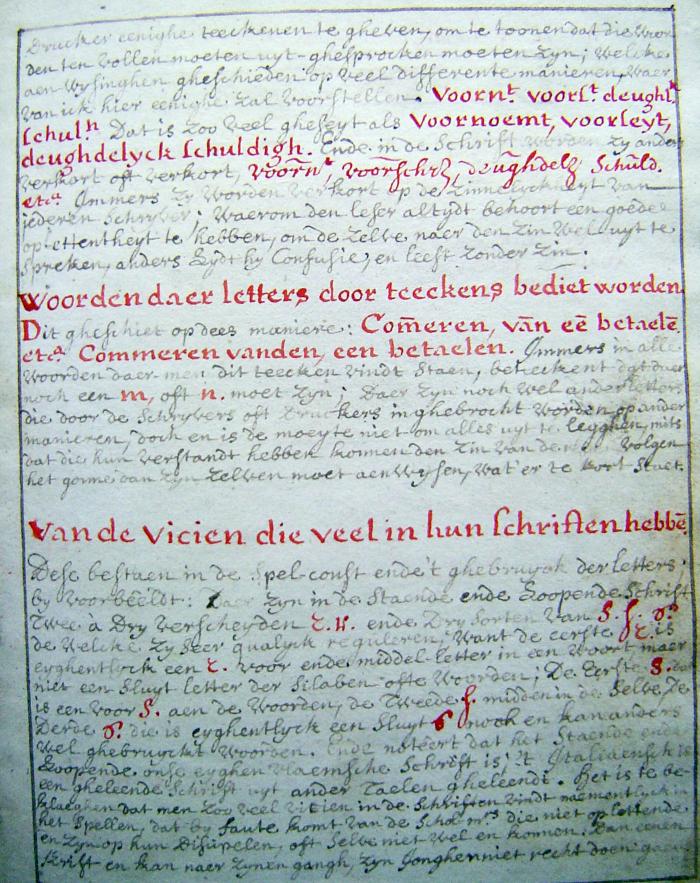 Drucker eenighe teeckenen te gheven, om te toonen dat die Woor
den ten vollen moeten uyt-ghesprocken moeten zyn; Welcke
aen Wysinghen gheschieden op veel differente manieren, Waer
van ick hier eenighe zal Voorstellen. Voorn.t voors.t deughl.k
schul.h Dat is zoo Veel gheseyt als Voornoemt, voorseyt,
deughdelyck schuldigh. Ende in de Schrift worden zy anders
verkort oft verkort, voorn.r, voorschr., deughdel. Schuld.
etc.a Immers zy Worden verkort op de Zinnelyckheyt van
iederen Schryver; Waerom den leser altydt behoort een goede
op ettentheyt te hebben, om de Zelve naer den Zin Wel uyt te
Spreken, anders Lydt hy Confusie, en leest Zonder Zin.
Woorden daer letters door teeckens bediet worden
Dit gheschiet op dees maniere: Com̄eren, vān eē betaelē
etc.a Commeren vanden, een betaelen. Immers in alle
Woorden daer men dit teecken vindt Staen, beteeckent dat daer
noch een m, oft n. moet Zyn; Daer Zyn noch Wel ander letters
die door de Schryvers oft Druckers in ghebrocht Worden op ander
manieren, doch en is de moeyte niet om alles uyt te legghen, mits
dat die hun verstandt hebben konnen den Zin van de volgen
het gonne van Zyn Zelven moet aenWysen, Wat'er te kort Staet.
Van de Vicien die veel in hun schriften hebbē
Dese bestaen in de Spel-const ende 't ghebruyck der letters
by Voorbeeldt: Daer Zyn in de Staende ende Loopende Schrift
Twee à Dry verscheyden r. ende Dry Sorten Van S. ſ. s.
de Welcke Zy Seer qualyck reguleren, Want de eerste r. is
eyghentlyck een r. voor ende middel-letter in een Woort maer
niet een Sluyt letter der Silaben ofte Woorden; De Eerste S. dat
is een voor S. aen de Woorden, de Tweede ſ. midden in de Selve, De
Derde s. die is eyghentlyck een Sluyt s noch en kan anders
Wel ghebruyckt Worden. Ende noteert dat het Staende ende
Loopende onse eyghen vlaemsche Schrift is; 't Italiaensch is
een gheleende Schrift uyt ander Taelen gheleendt. Het is te be-
klaeghen dat men Zoo veel vicien in de Schriften vindt naementlyck in
het Spellen, dat by faute komt van de Schol m.rs die niet oplettende
en Zyn op hun Disupelen, oft Selve niet Wel en konnen. Dan eenen
kan naer Zynen gangh, Zyn Jonghen niet recht doen gaen